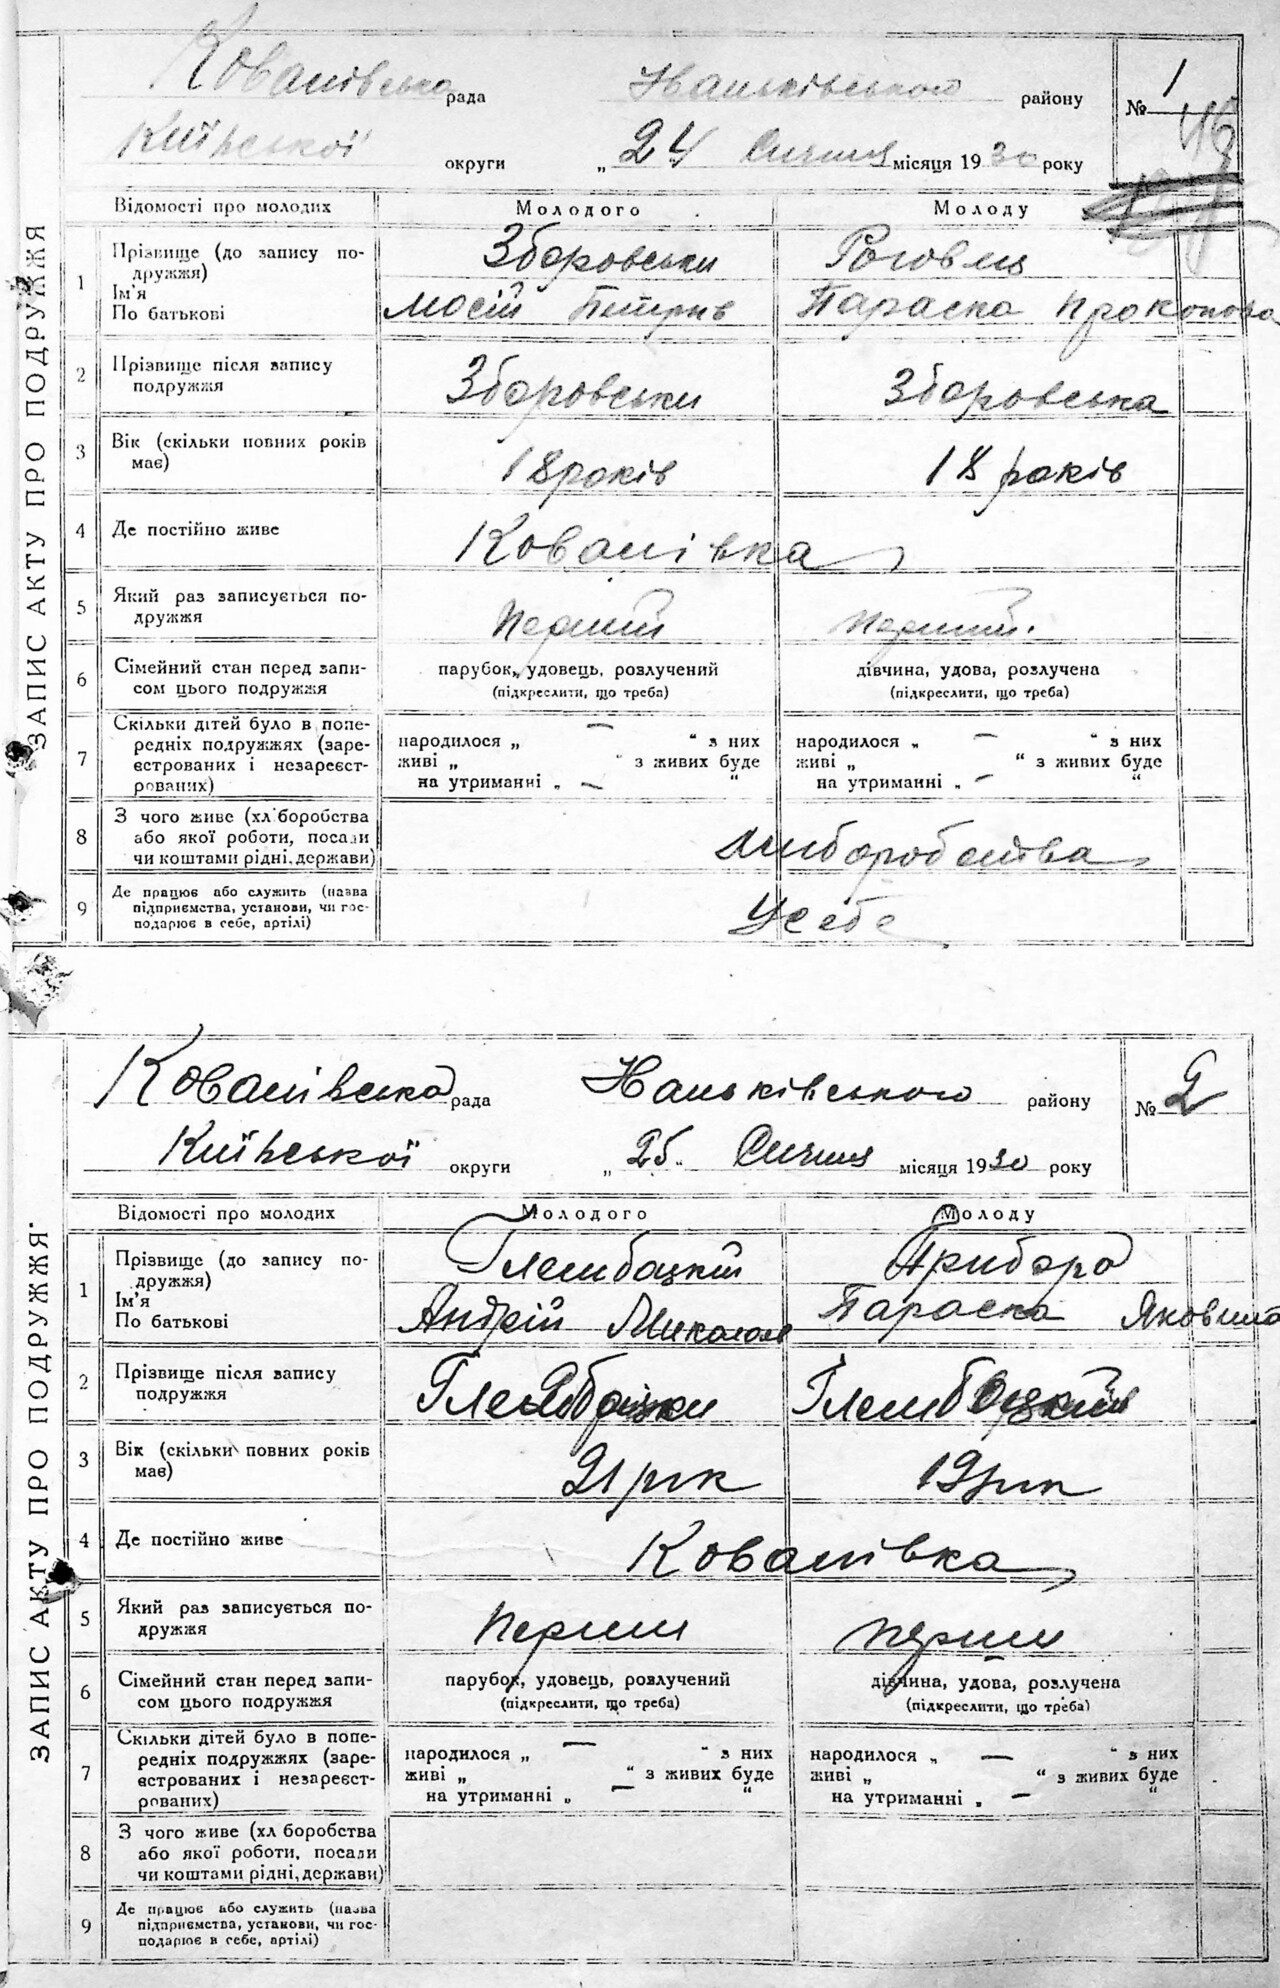 ЗАПИС АКТУ ПРО ПОДРУЖЖЯ
Ковалівська рада району № 1
Київської округи „ 24 Січня місяця 1930 року
Відомості про молодих Молодого Молоду
1 Прізвище (до запису по- Зборовськи
дружжя)
Ім'я
По батькові Мосій Петрів Параска Прокопова
2 Прізвище після запису
подружжя Зборовськи Зборовська
3 Вік (скільки повних років
має) 18 років 18 років
4 Де постійно живе Ковалівка
5 Який раз записується по-
дружжя Перший Перший.
6 Сімейний стан перед запи- парубок, удовець, розлучений дівчина, удова, розлучена
сом цього подружжя (підкреслити, що треба) (підкреслити, що треба)
7 Скільки дітей було в попе-
редніх подружжях (заре- народилося „ — “ з них народилося „ — “ з них
єстрованих і незареєст- живі „ “ з живих буде живі „ “ з живих буде
рованих) на утриманні „ — “ на утриманні „ — “
8 З чого живе (хл боробства
або якої роботи, посади
чи коштами рідні, держави) хлиборобства
9 Де працює або служить (назва
підприємства, установи, чи гос-
подарює в себе, артілі) У себе
ЗАПИС АКТУ ПРО ПОДРУЖЖЯ
Ковалівська рада району № 2
Київської округи „ 25 „ Січня місяця 1930 року
Відомості про молодих Молодого Молоду
1 Прізвище (до запису по- Глембоцкій
дружжя)
Ім'я
По батькові Андрій Миколов Параска Яковлева
2 Прізвище після запису
подружжя
3 Вік (скільки повних років
має) 21 рік 19 рік
4 Де постійно живе Ковалівка
5 Який раз записується по-
дружжя Перши перши
6 Сімейний стан перед запи- парубок, удовець, розлучений дівчина, удова, розлучена
сом цього подружжя (підкреслити, що треба) (підкреслити, що треба)
7 Скільки дітей було в попе-
редніх подружжях (заре- народилося „ — “ з них народилося „ — “ з них
єстрованих і незареєст- живі „ “ з живих буде живі „ “ з живих буде
рованих) на утриманні „ — “ на утриманні „ — “
8 З чого живе (хл боробства
або якої роботи, посади
чи коштами рідні, держави)
9 Де працює або служить (назва
підприємства, установи, чи гос-
подарює в себе, артілі)